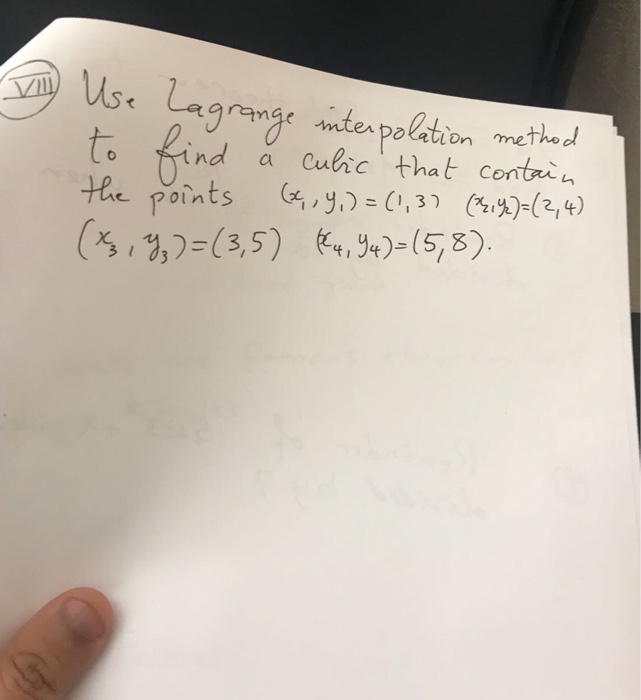 VIII Use Lagrange interpolation method
to find a cubic that contain
the points (x₁, y₁) = (1, 3) (x₂, y₂)=(2, 4)
(x₃, y₃)=(3, 5) (x₄, y₄)=(5, 8).